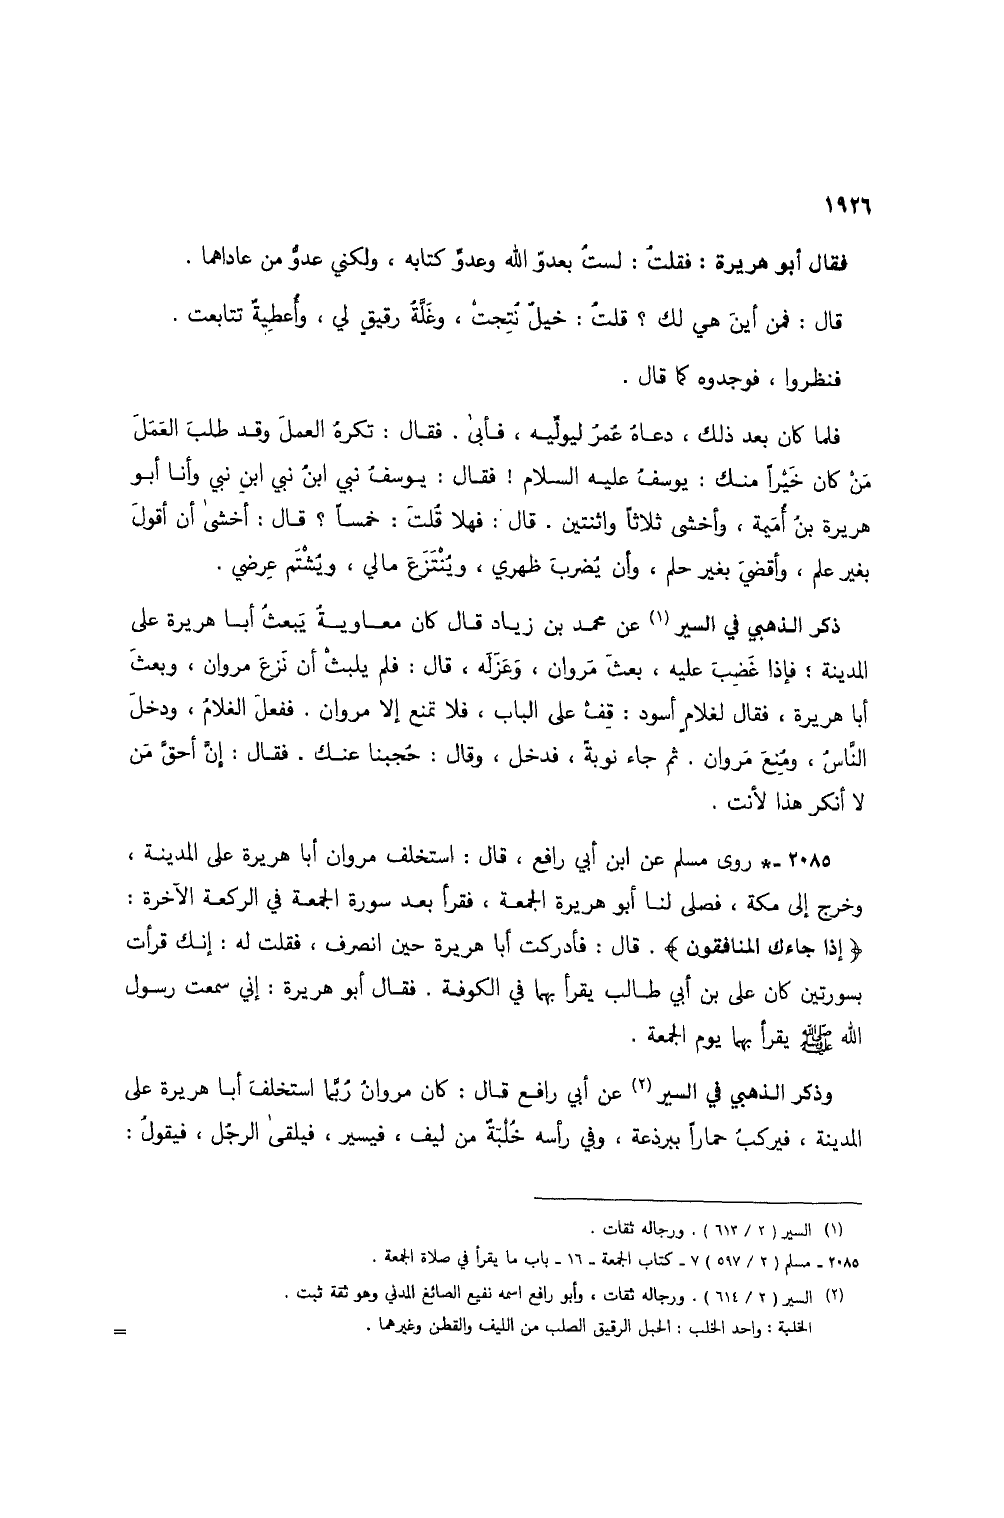 ١٩٢٦
فقال أبو هريرة : فقلتُ : لستُ بعدوّ الله وعدوِّ كتابه ، ولكني عدوُّ من عاداهما .
قال : فمن أينَ هي لك ؟ قلتُ : خيلٌ نُتِجتْ ، وغَلَّةُ رقيقٍ لي ، وأُعطِيةٌ تتابعت .
فنظروا ، فوجدوه كما قال .
فلما كان بعد ذلك ، دعاهُ عُمرُ ليولِّيه ، فأبىٰ . فقال : تكرهُ العملَ وقد طلبَ العَمَلَ
مَنْ كان خَيْراً منك : يوسفُ عليه السلام ! فقال : يوسفُ نبي ابنُ نبي ابنِ نبي وأنا أبو
هريرة بنُ أُمَيمة ، وأخشى ثلاثاً واثنتين . قال : فهلا قُلتَ : خمساً ؟ قال : أخشىٰ أن أقولَ
بغير علم ، وأقضيَ بغير حلم ، وأن يُضربَ ظهري ، ويُنْتَزَعَ مالي ، ويُشْتَم عِرضي .
ذكر الذهبي في السير (١) عن محمد بن زياد قال كان معاويةُ يَبعثُ أبا هريرة على
المدينة ؛ فإذا غَضِبَ عليه ، بعثَ مَروان ، وَعَزَلَه ، قال : فلم يلبثْ أن نَزعَ مروان ، وبعثَ
أبا هريرة ، فقال لغلامٍ أسود : قِفْ على الباب ، فلا تمنع إلا مروان . ففعلَ الغلامُ ، ودخلَ
النَّاسُ ، ومُنِعَ مَروان . ثم جاء نوبةً ، فدخل ، وقال : حُجبنا عنك . فقال : إنَّ أحقَّ مَن
لا أنكر هذا لأنت .
٢٠٨٥ -* روى مسلم عن ابن أبي رافع ، قال : استخلف مروان أبا هريرة على المدينة ،
وخرج إلى مكة ، فصلى لنا أبو هريرة الجمعة ، فقرأ بعد سورة الجمعة في الركعة الآخرة :
﴿ إذا جاءك المنافقون ﴾ . قال : فأدركت أبا هريرة حين انصرف ، فقلت له : إنك قرأت
بسورتين كان على بن أبي طالب يقرأ بهما في الكوفة . فقال أبو هريرة : إني سمعت رسول
الله ﷺ يقرأ بهما يوم الجمعة .
وذكر الذهبي في السير (٢) عن أبي رافع قال : كان مروانُ رُبَّما استخلفَ أبا هريرة على
المدينة ، فيركبُ حماراً ببرذعة ، وفي رأسه خُلْبَةٌ من ليف ، فيسير ، فيلقىٰ الرجُل ، فيقولُ :
(١) السير ( ٢ / ٦١٣ ) . ورجاله ثقات .
٢٠٨٥ - مسلم ( ٢ / ٥٩٧ ) ٧ - كتاب الجمعة - ١٦ - باب ما يقرأ في صلاة الجمعة .
(٢) السير ( ٢ / ٦١٤ ) . ورجاله ثقات ، وأبو رافع اسمه نفيع الصائغ المدني وهو ثقة ثبت .
الخلبة : واحد الخلب : الحبل الرقيق الصلب من الليف والقطن وغيرهما .
=